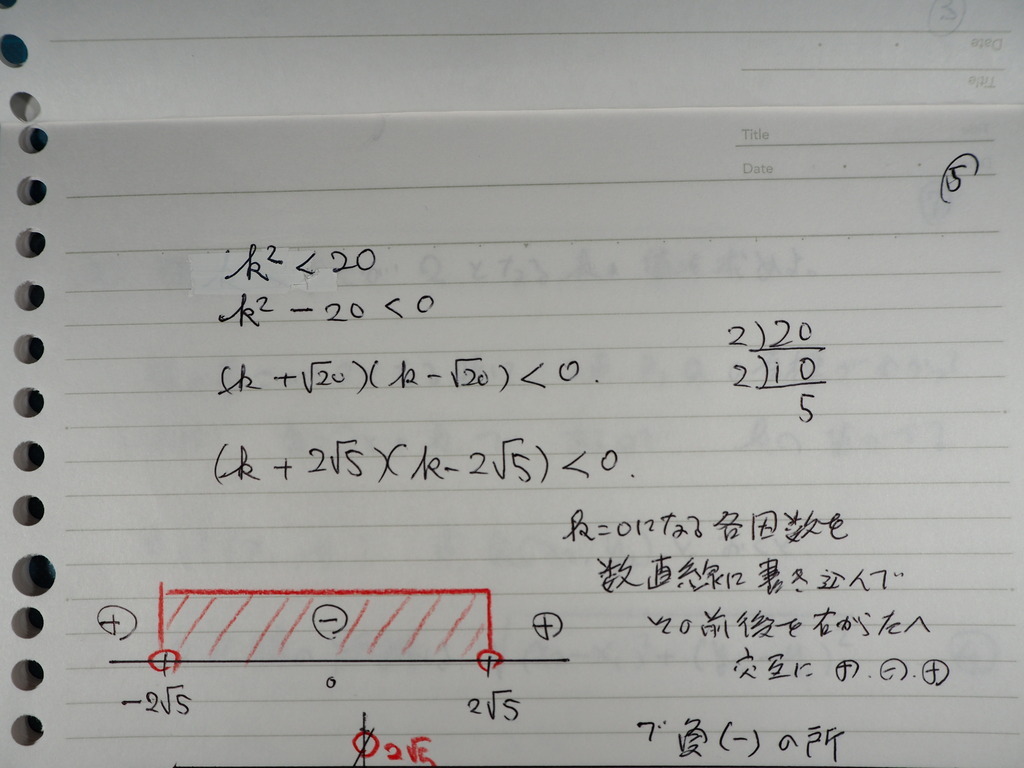 Title
Date
⑤
k² < 20
k² - 20 < 0
(k + √20)(k - √20) < 0.
2)20
2)10
5
(k + 2√5)(k - 2√5) < 0.
k=0になる各因数を
数直線に書き込んで
その前後を右から左へ
交互に ⊕.⊖.⊕
で負(-)の所
⊕ ⊖ ⊕
-2√5 0 2√5
2√5